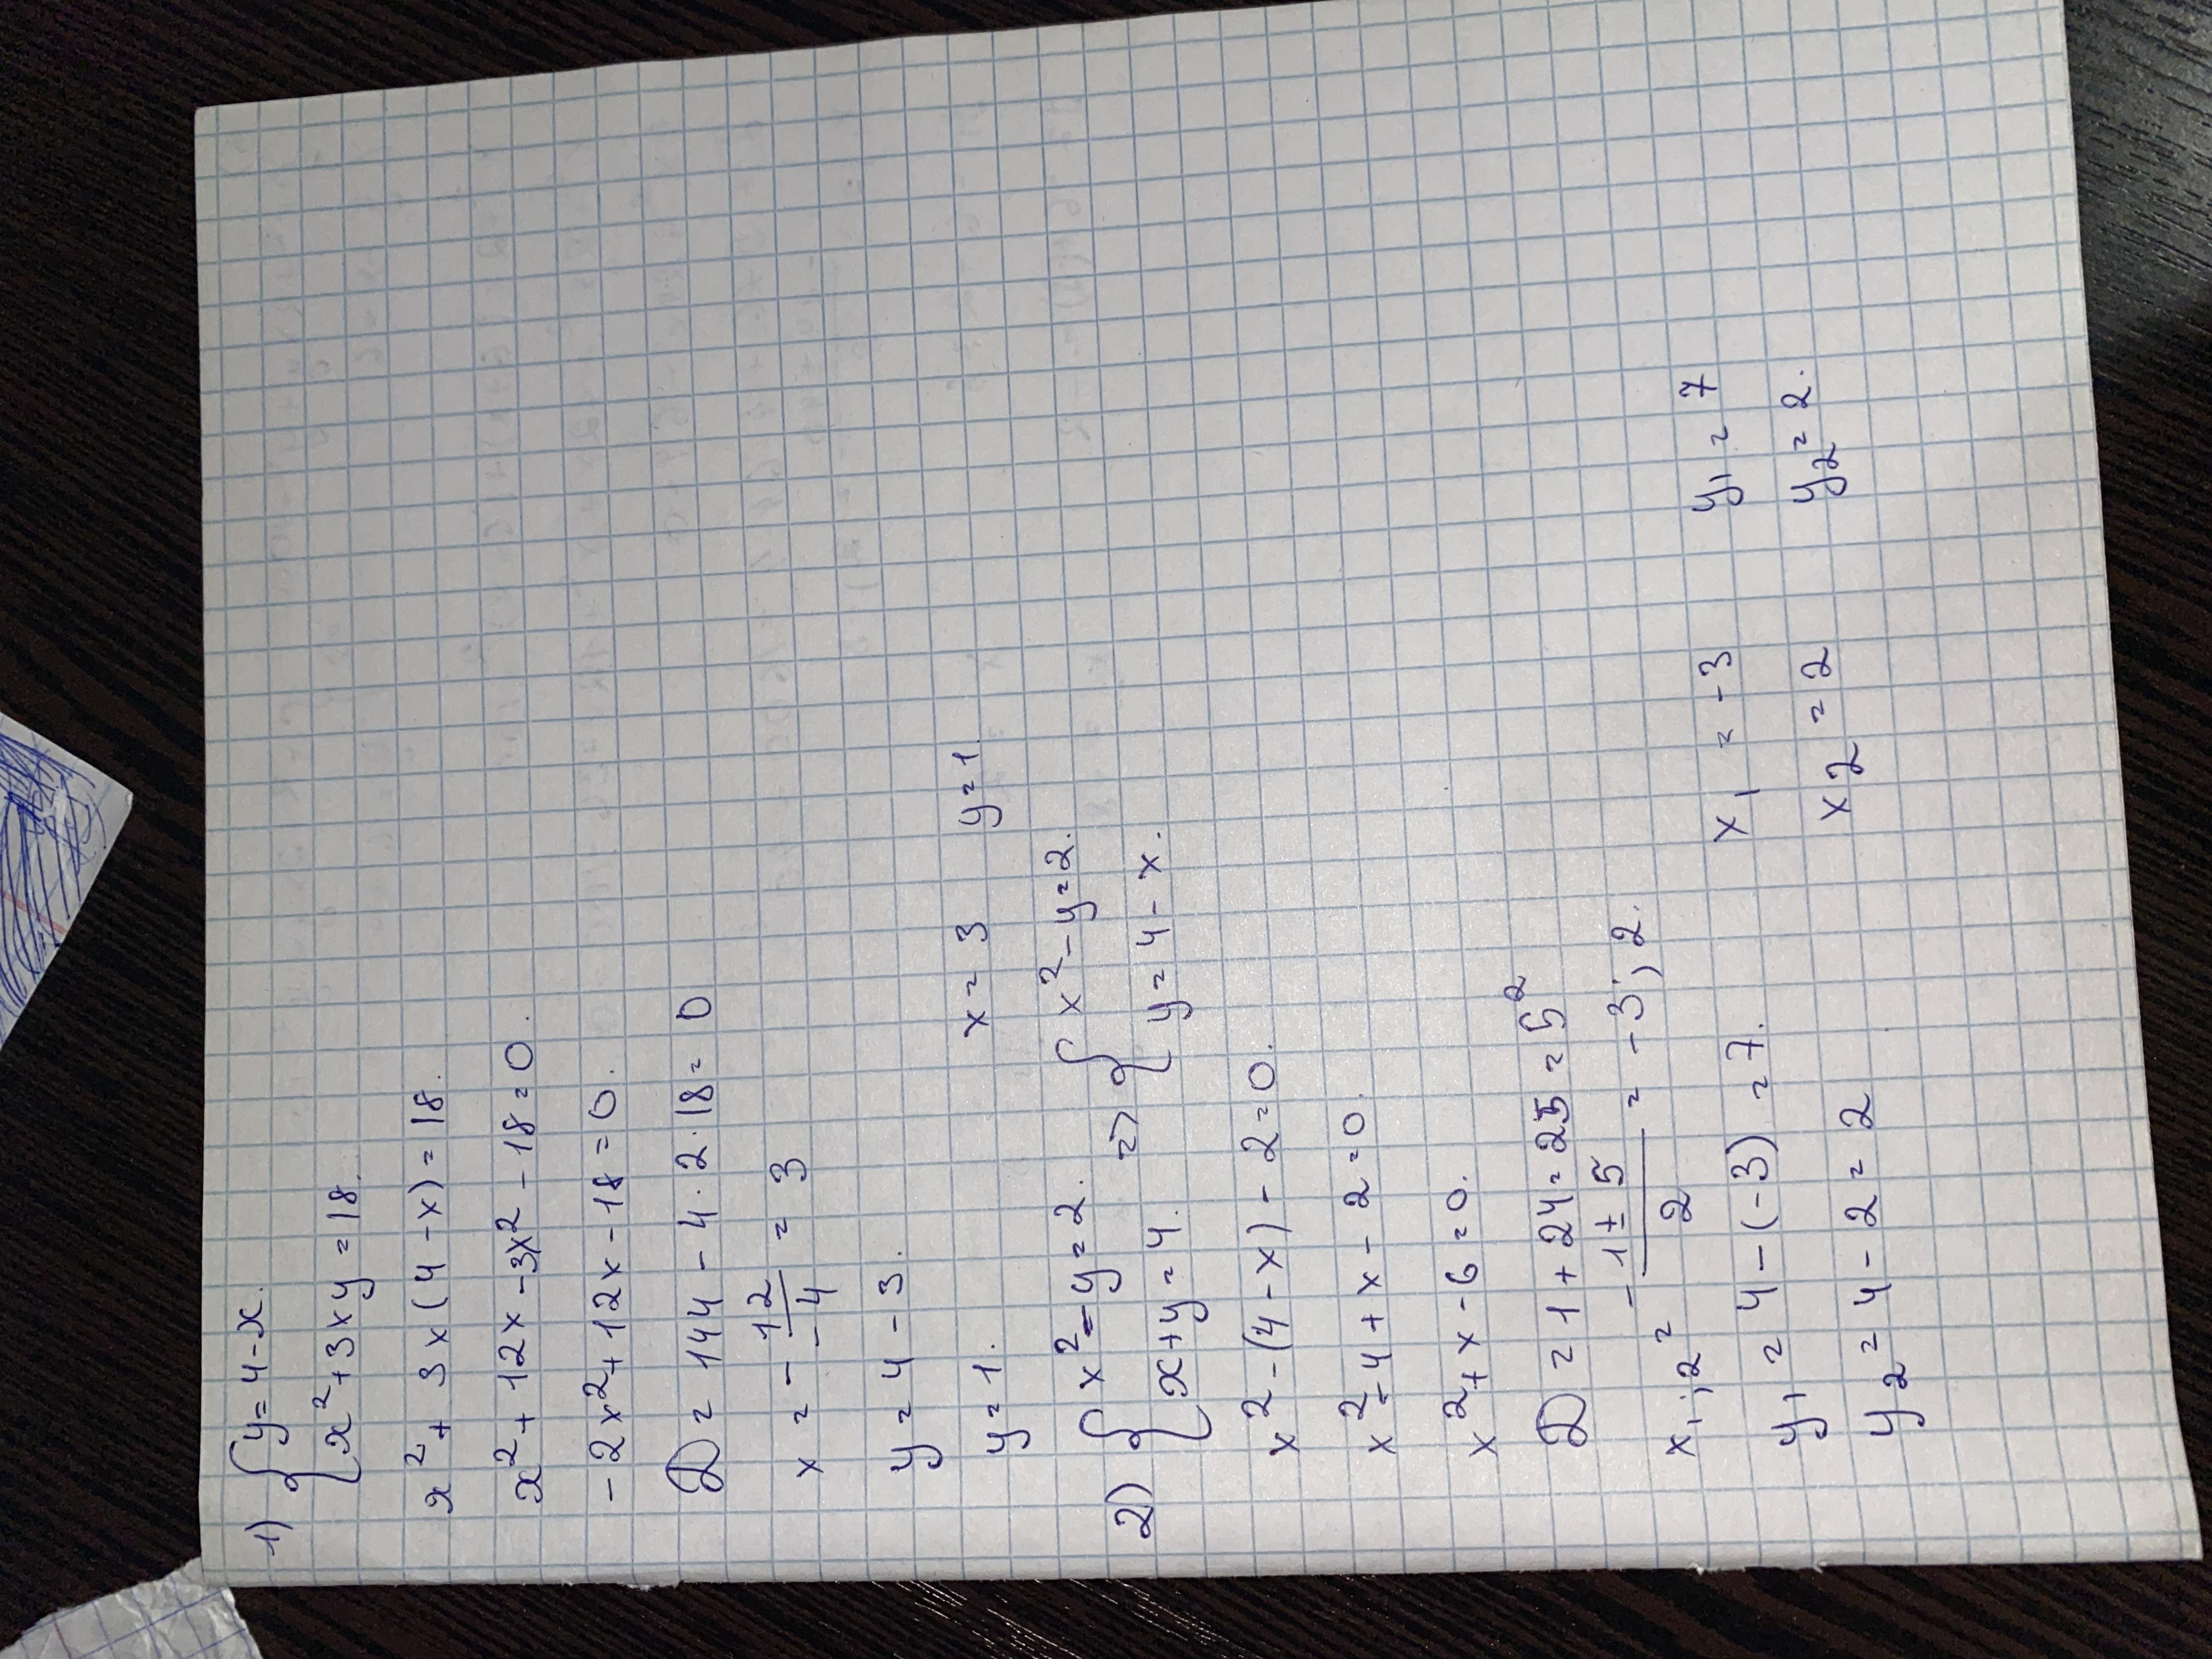 1) { y = 4 - x.
x² + 3xy = 18.
x² + 3x(4 - x) = 18.
x² + 12x - 3x² - 18 = 0.
-2x² + 12x - 18 = 0.
D = 144 - 4 · 2 · 18 = 0
x = - 12/-4 = 3
y = 4 - 3.
y = 1.
x = 3 y = 1.
2) { x² - y = 2. => { x² - y = 2.
x + y = 4. y = 4 - x.
x² - (4 - x) - 2 = 0.
x² - 4 + x - 2 = 0.
x² + x - 6 = 0.
D = 1 + 24 = 25 = 5²
x1;2 = -1 ± 5/2 = -3; 2.
y1 = 4 - (-3) = 7.
y2 = 4 - 2 = 2
x1 = -3 y1 = 7
x2 = 2 y2 = 2.